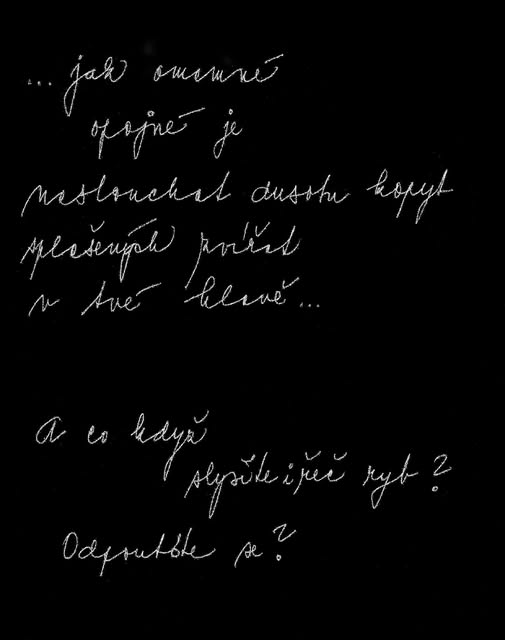 ... jak omamné
opojné je
naslouchat dusotu kopyt
splašených zvířat
v tvé hlavě...
A co když
slyšíte i řeč ryb?
Odpoutáte se?